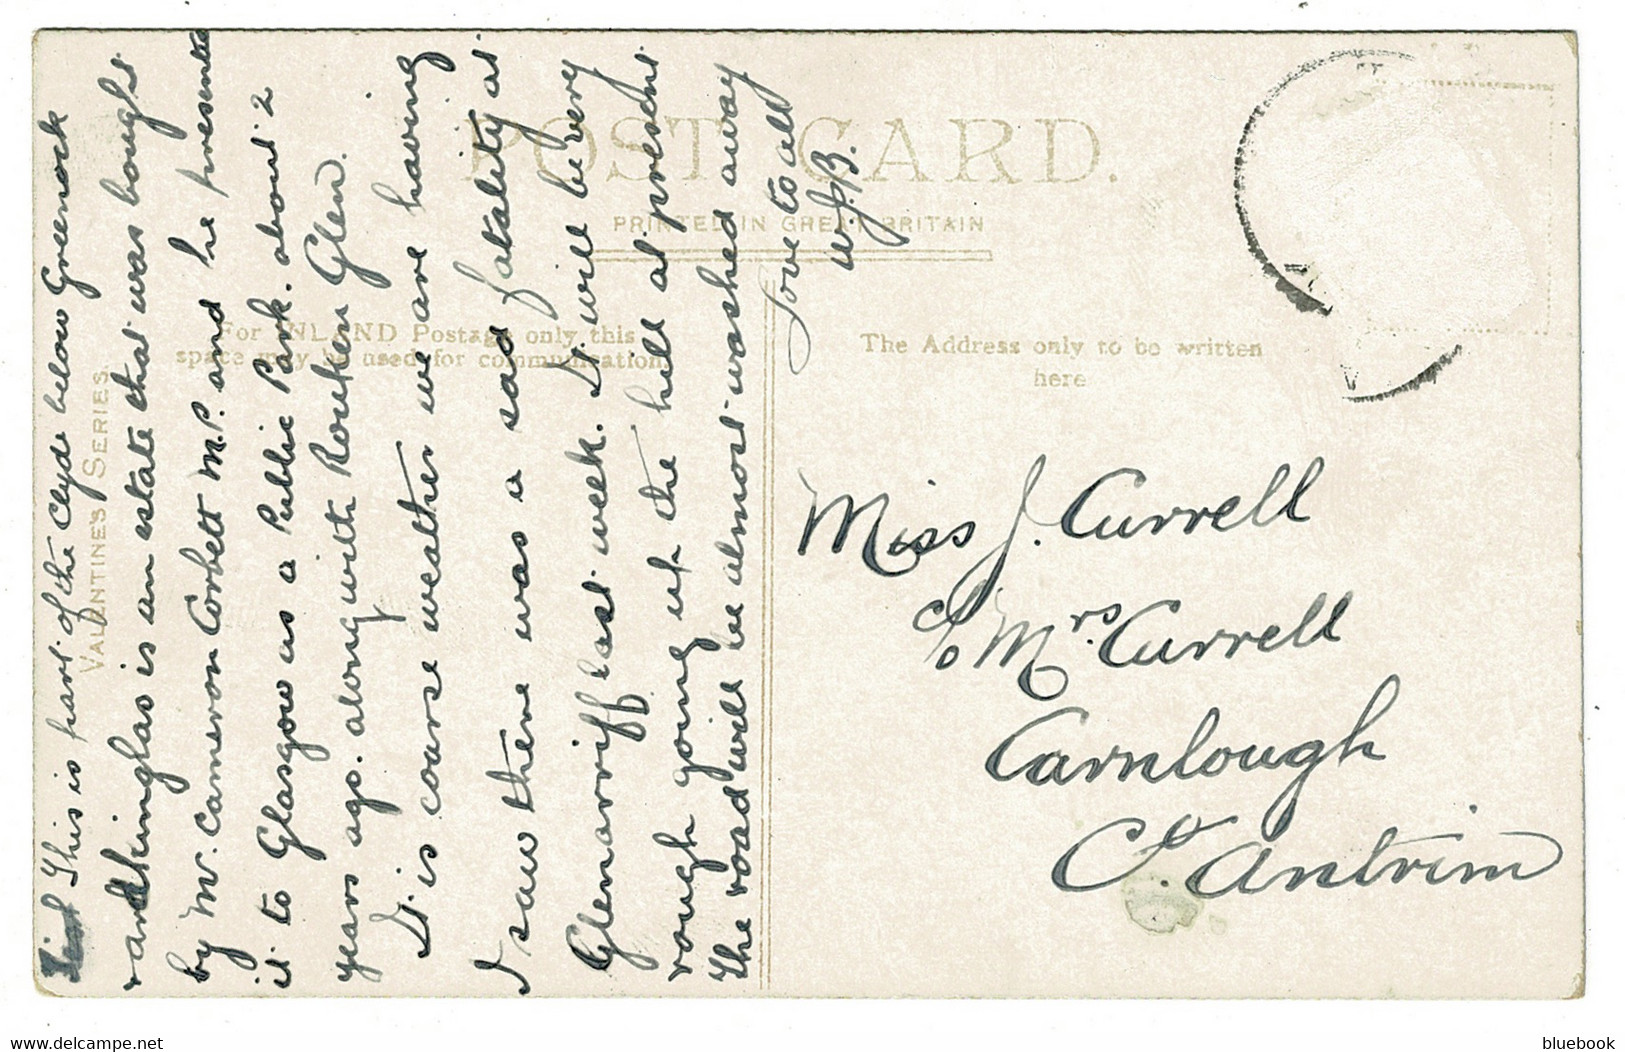 POST CARD.
PRINTED IN GREAT BRITAIN
For INLAND Postage only this
space may be used for communication.
The Address only to be written
here
VALENTINE'S SERIES.
This is part of the Clyde below Greenock
Ardkinglas is an estate that was bought
by Mr. Cameron Corbett M.P. and he presented
it to Glasgow as a Public Park. about 2
years ago. along with Rouken Glen.
It is coarse weather we are having
I saw there was a sad fatality at
Glenarriff last week. It will be very
rough going up the hill at present
The road will be almost washed away
Love to all
W.J.B.
Miss J. Currell
c/o Mrs. Currell
Carnlough
Co. Antrim
bluebook